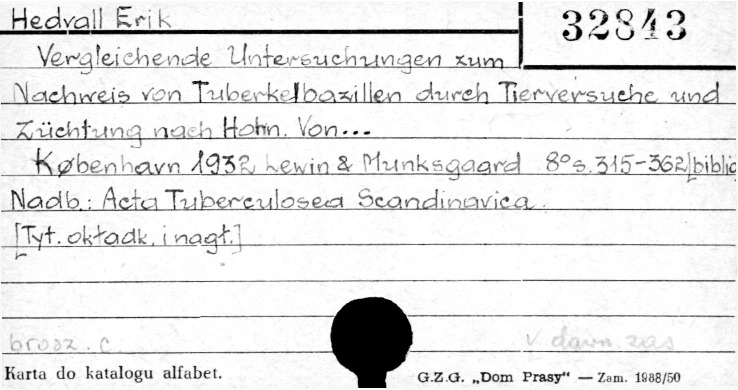 Hedvall Erik
32843
Vergleichende Untersuchungen zum
Nachweis von Tuberkelbazillen durch Tierversuche und
Züchtung nach Hohn. Von...
København 1932 Lewin & Munksgaard 8° s. 315-362 [biblio
Nadb.: Acta Tuberculosea Scandinavica.
[Tyt. okładk. i nagł.]
brosz. c
v dawn. zas
Karta do katalogu alfabet.
G.Z.G. „Dom Prasy" — Zam. 1988/50